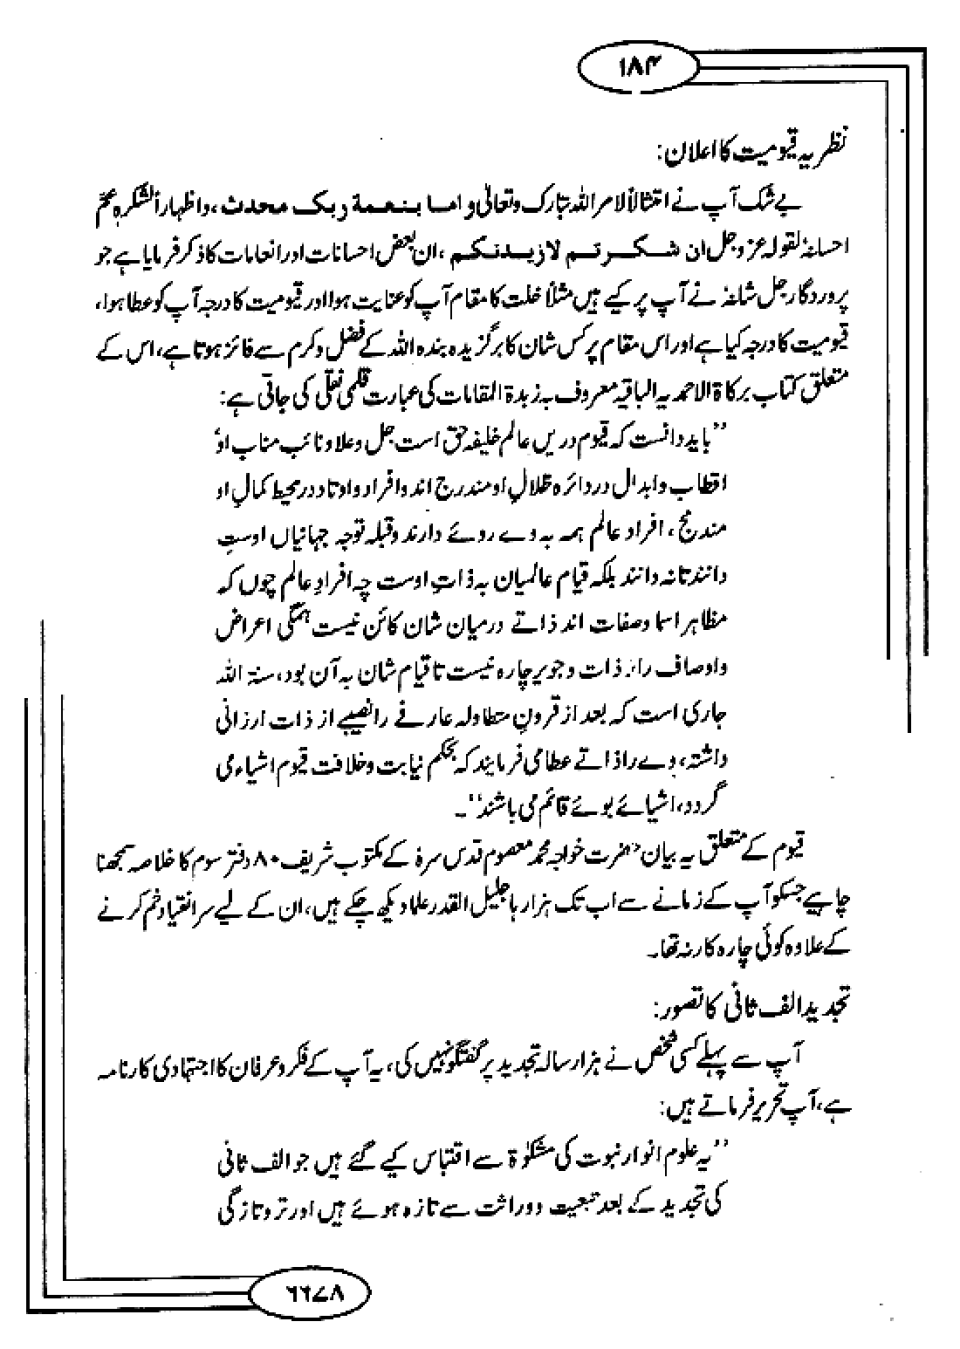 ۱۸۴
نظریہ قیومیت کا اعلان:
بے شک آپ نے امتثالاً لامر اللہ تبارک وتعالیٰ واما بنعمة ربک محدث، واظہار الشکرہ عمّ
احسانہٗ لقولہ عز وجل ان شکرتم لازیدنکم، ان بعض احسانات اور انعامات کا ذکر فرمایا ہے جو
پروردگار جل شانہٗ نے آپ پر کیے ہیں مثلاً خلت کا مقام آپ کو عنایت ہوا اور قیومیت کا درجہ آپ کو عطا ہوا،
قیومیت کا درجہ کیا ہے اور اس مقام پر کس شان کا برگزیدہ بندہ اللہ کے فضل وکرم سے فائز ہوتا ہے، اس کے
متعلق کتاب برکاۃ الاحمدیہ الباقیہ معروف بہ زبدۃ المقامات کی عبارت قلمی نقل کی جاتی ہے:
’’باید دانست کہ قیوم دریں عالم خلیفہ حق است جل وعلا ونائب مناب اوٗ
اقطاب وابدال در دائرہ ظلالِ او مندرج اند وافراد واوتاد در محیط کمالِ او
مندمج، افراد عالم ہمہ بہ وے روئے دارند وقبلہ توجہ جہانیاں اوست
دانند تانہ دانند بلکہ قیام عالمیان بہ ذاتِ اوست چہ افرادِ عالم چوں کہ
مظاہر اسما وصفات اند ذاتے درمیان شان کائن نیست ہمگی اعراض
واوصاف را از ذات وجوہر چارہ نیست تا قیام شان بہ آن بود، سنۃ اللہ
جاری است کہ بعد از قرونِ متطاولہ عارفے را نصیبے از ذات ارزانی
داشتہ، وے را ذاتے عطا می فرمایند کہ بحکم نیابت وخلافت قیوم اشیاء می
گردد، اشیائے بوئے قائم می باشند‘‘۔
قیوم کے متعلق یہ بیان حضرت خواجہ محمد معصوم قدس سرہٗ کے مکتوب شریف ۸۰ دفتر سوم کا خلاصہ سمجھنا
چاہیے جسکو آپ کے زمانے سے اب تک ہزارہا جلیل القدر علماء دیکھ چکے ہیں، ان کے لیے سر انقیاد خم کرنے
کے علاوہ کوئی چارہ کار نہ تھا۔
تجدید الف ثانی کا تصور:
آپ سے پہلے کسی شخص نے ہزار سالہ تجدید پر گفتگو نہیں کی، یہ آپ کے فکر وعرفان کا اجتہادی کارنامہ
ہے، آپ تحریر فرماتے ہیں:
’’یہ علوم انوار نبوت کی مشکوٰۃ سے اقتباس کیے گئے ہیں جو الف ثانی
کی تجدید کے بعد تبعیت ووراثت سے تازہ ہوئے ہیں اور تروتازگی
۶۶۷۸